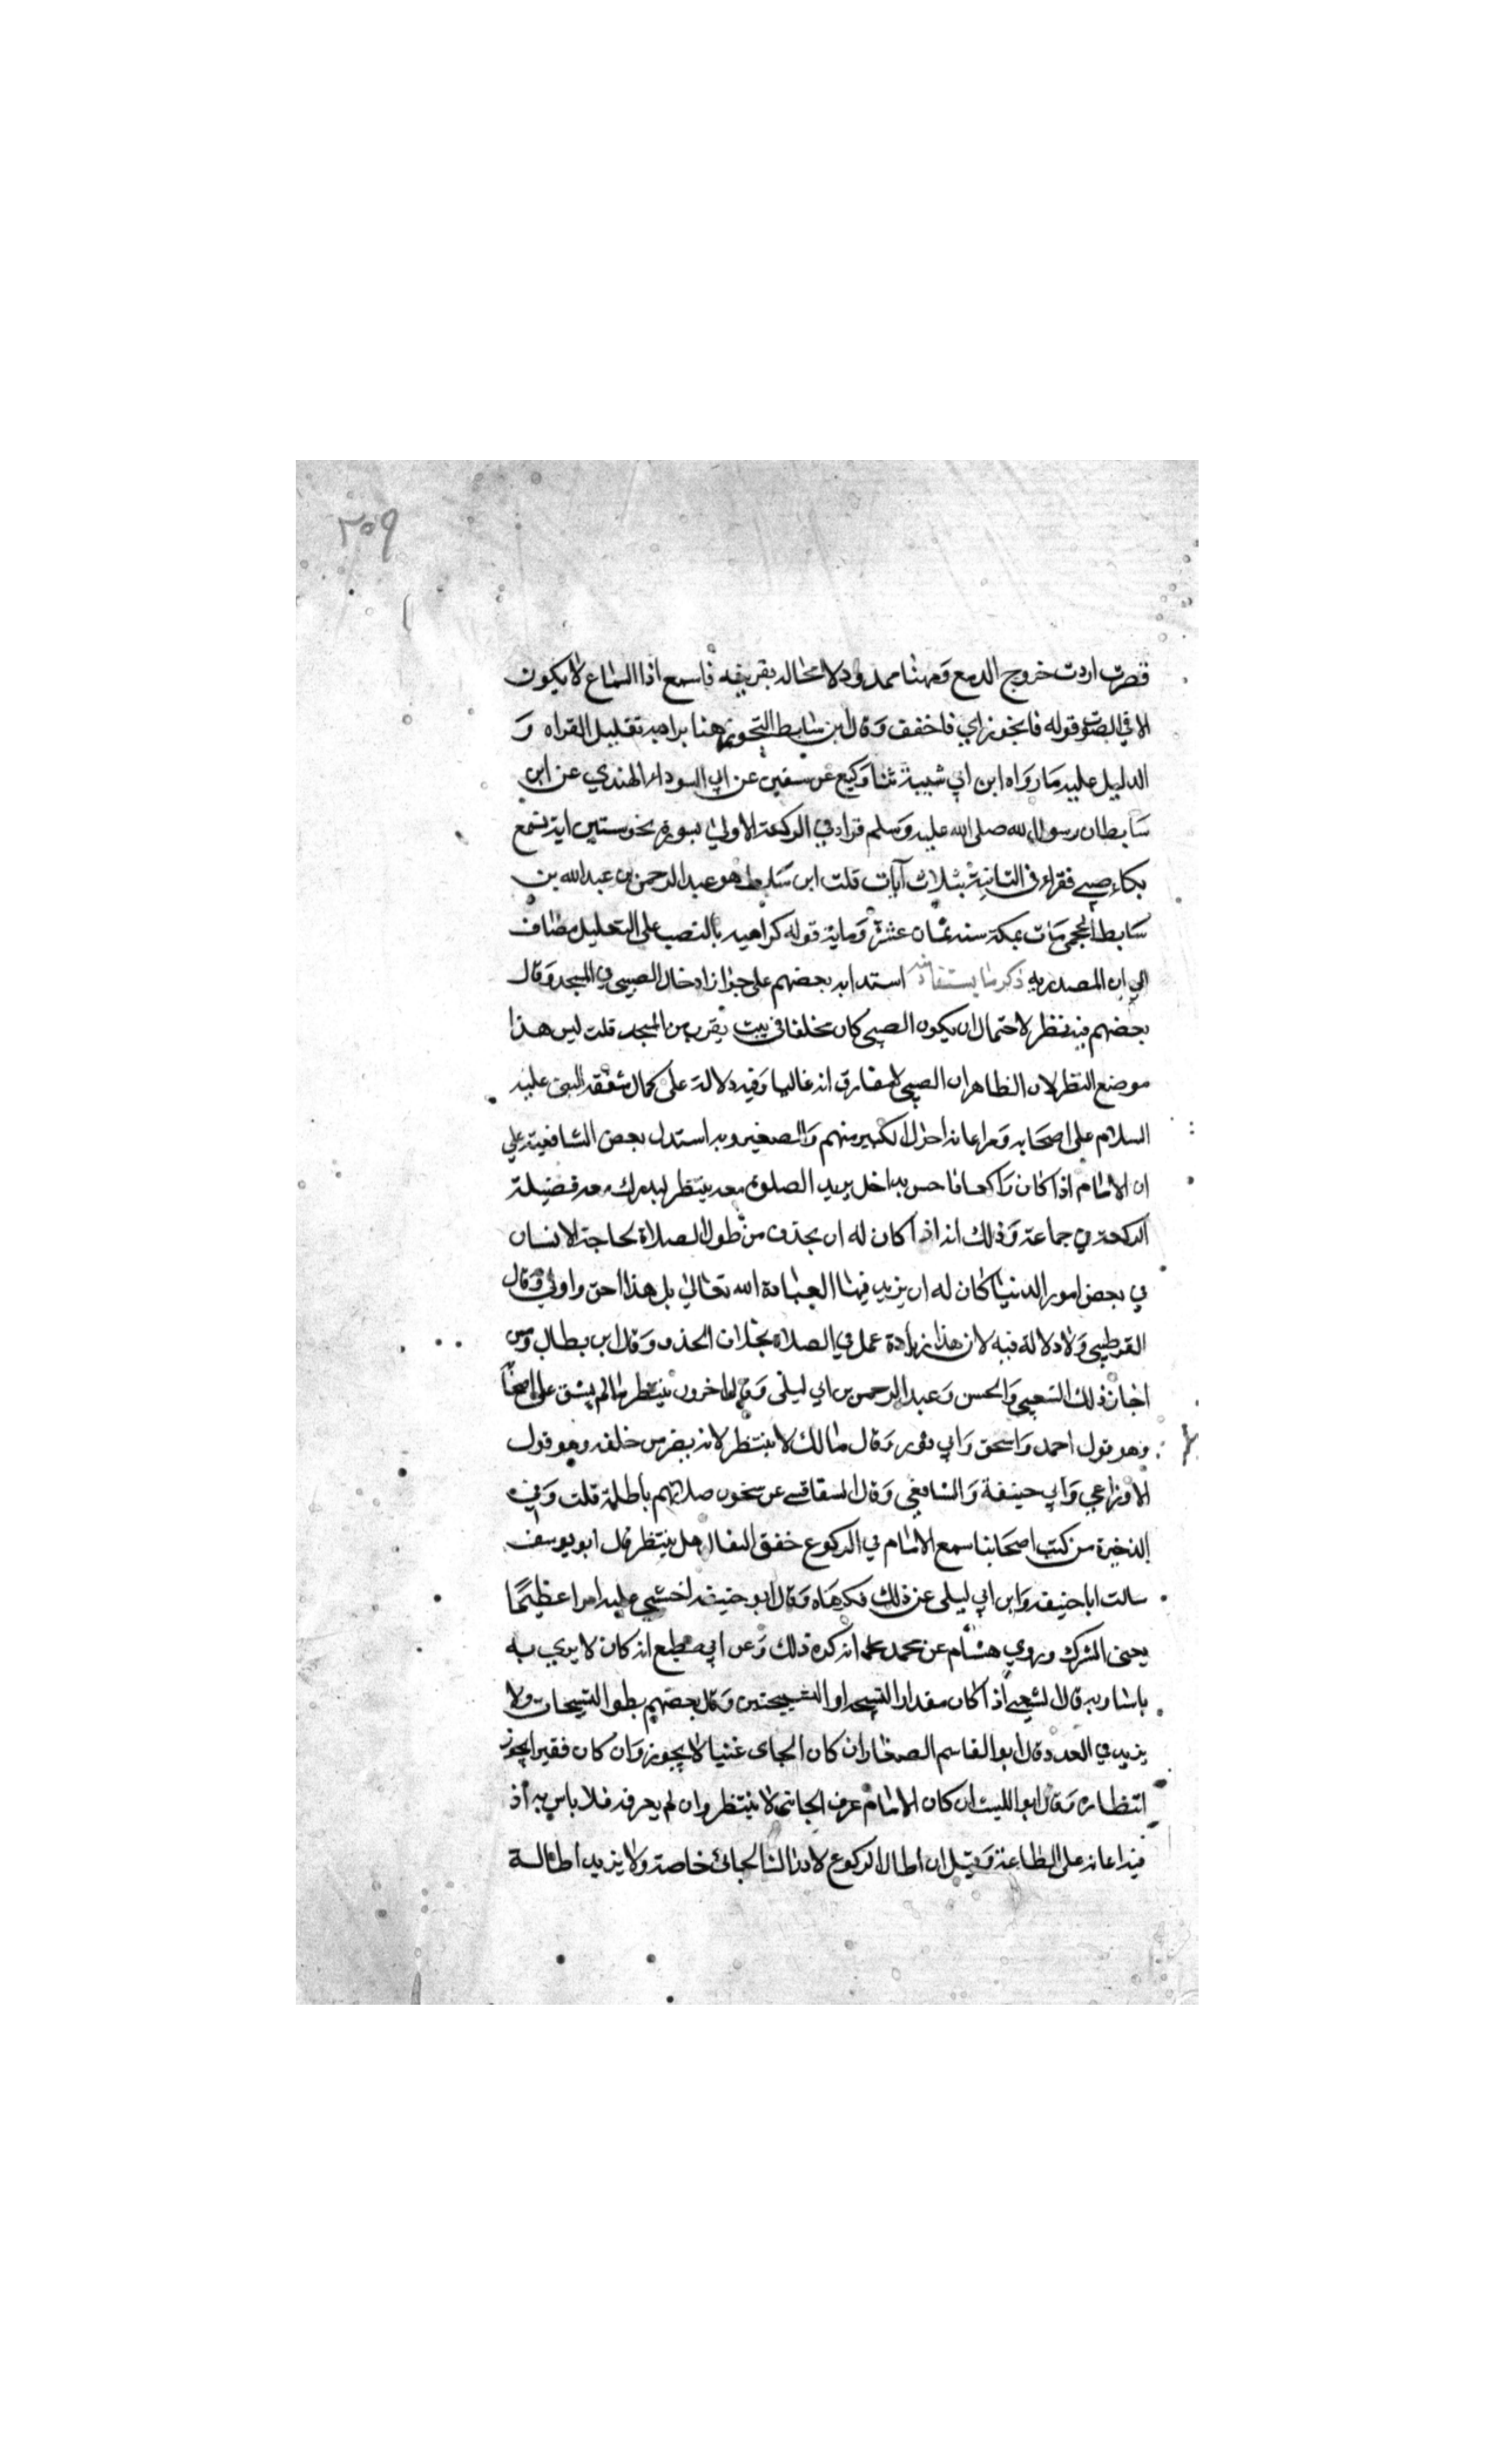 ٢٥٩
قصرت اردت خروج الدمع وههنا ممدود لا محاله بقرينه فاسمع اذا السماع لا يكون
الا في الصوت قوله فاتجوز اي فاخفف وقال ابن سابط التجوز هنا يراد به تقليل القراه و
الدليل عليه ما رواه ابن ابي شيبة ثنا وكيع عن سفين عن ابي السوداء الهندي عن ابن
سابط ان رسول الله صلى الله عليه وسلم قرا في الركعة الاولى بسورة نحو ستين اية فسمع
بكاء صبي فقراء في الثانية بثلاث آيات قلت ابن سابط هو عبد الرحمن بن عبد الله بن
سابط الجمحي مات بمكة سنه ثمان عشرة وماية قوله كراهيه بالنصب على التعليل مضاف
الي ان المصدريه ذكر ما يستفاد منه استدل به بعضهم على جواز ادخال الصبي في المسجد وقال
بعضهم فيه نظر لاحتمال ان يكون الصبي كان مخلفا في بيت يقرب من المسجد قلت ليس هذا
موضع النظر لان الظاهر ان الصبي لا يفارق امه غالبا وفيه دلالة على كمال شفقه النبي عليه
السلام على اصحابه ومراعاته احوال الكبير منهم والصغير وبه استدل بعض الشافعية علي
ان الامام اذا كان راكعا فاحس بداخل يريد الصلوة معه ينتظر ليدرك معه فضيلة
الركعة في جماعة وذلك انه اذا كان له ان يحذف من طول الصلاة لحاجة الانسان
في بعض امور الدنيا كان له ان يزيد فيها العبادة الله تعالي بل هذا احق واولي وقال
القرطبي ولا دلالة فيه لان هذا زيادة عمل في الصلاة بخلاف الحذف وقال ابن بطال ومن
اجاز ذلك الشعبي والحسن وعبد الرحمن بن ابي ليلى وقال اخرون ينتظر ما لم يشق على اصحابه
وهو قول احمد واسحق وابي ثور وقال مالك لا ينتظر لانه يضر من خلفه وهو قول
الاوزاعي وابي حنيفة والشافعي وقال السفاقسي عن سحنون صلاتهم باطلة قلت وفي
الذخيرة من كتب اصحابنا سمع الامام في الركوع خفق النعال هل ينتظر قال ابو يوسف
سالت ابا حنيفه وابن ابي ليلى عن ذلك فكرهاه وقال ابو حنيفه اخشي عليه امرا عظيما
يعني الشرك وروي هشام عن محمد انه كره ذلك وعن ابي مطيع انه كان لا يري به
باسا وبه قال الشعبي اذا كان مقدار التسبيحه او التسبيحتين وقال بعضهم يطول التسبيحات ولا
يزيد في العدد وقال ابو القاسم الصفار ان كان الجاي غنيا لا يجوز وان كان فقيرا يجوز
انتظاره وقال ابو الليث ان كان الامام عرف الجائي لا ينتظر وان لم يعرفه فلا باس به اذ
فيه اعانه على الطاعة وقيل ان اطال الركوع لادراك الجائي خاصة ولا يزيد اطالة